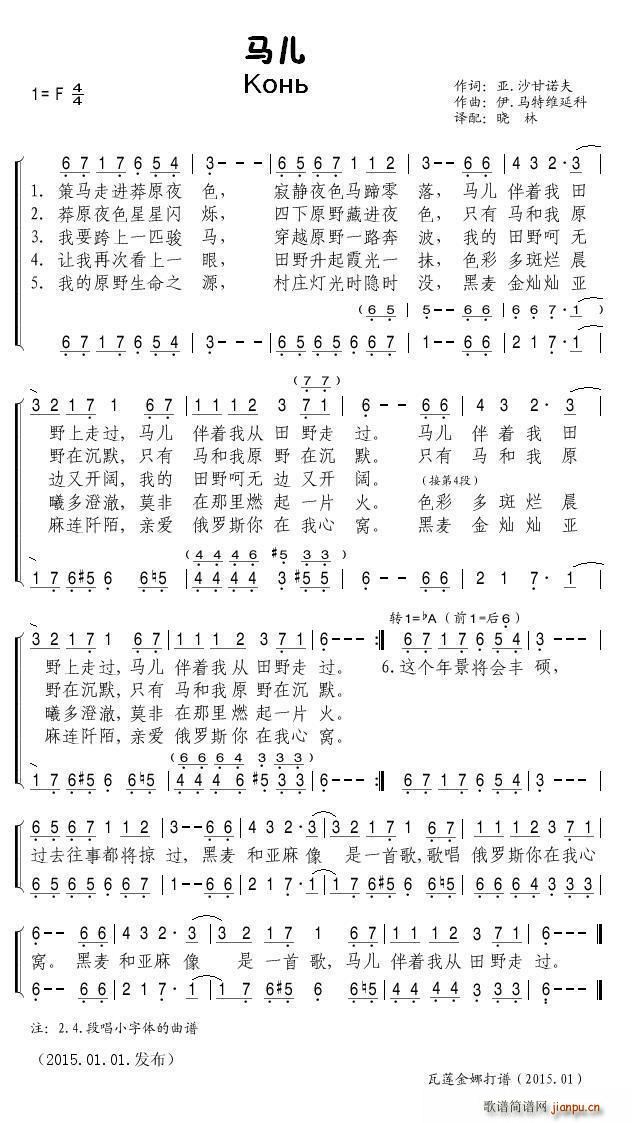 马儿
Конь
1=F 4/4
作词：亚.沙甘诺夫
作曲：伊.马特维延科
译配：晓 林
6 7 1 7 6 5 4 | 3 - - - | 6 5 6 7 1 1 2 | 3 - - 6 6 | 4 3 2 · 3 |
1. 策马走进莽原夜 色， 寂静夜色马蹄零 落，马儿 伴着我 田
2. 莽原夜色星星闪 烁，四下原野藏进夜 色，只有 马和我 原
3. 我要跨上一匹骏 马，穿越原野一路奔 波，我的 田野呵 无
4. 让我再次看上一 眼，田野升起霞光一 抹，色彩 多斑烂 晨
5. 我的原野生命之 源，村庄灯光时隐时 没，黑麦 金灿灿 亚
(6 5 | 5 - - 6 6 | 6 6 7 · 1)
6 7 1 7 6 5 4 | 3 - - - | 6 5 6 5 6 6 7 | 1 - - 6 6 | 2 1 7 · 1 |
(7 7)
3 2 1 7 1 6 7 | 1 1 1 2 3 7 1 | 6 - - 6 6 | 4 3 2 · 3 |
野上走过，马儿 伴着我从 田野走 过。 马儿 伴着我 田
野在沉默，只有 马和我原 野在沉 默。 只有 马和我 原
边又开阔，我的 田野呵无 边又开 阔。 (接第4段)
曦多澄澈，莫非 在那里燃 起一片 火。色彩 多斑烂 晨
麻连阡陌，亲爱 俄罗斯你 在我心 窝。黑麦 金灿灿 亚
(4 4 4 6 #5 3 3)
1 7 6 #5 6 6 ♮5 | 4 4 4 4 3 #5 5 | 6 - - 6 6 | 2 1 7 · 1 |
转1=♭A (前1=后6)
3 2 1 7 1 6 7 | 1 1 1 2 3 7 1 | 6 - - - :‖ 6 7 1 7 6 5 4 | 3 - - - |
野上走过，马儿 伴着我从 田野走 过。 6.这个年景将会丰 硕，
野在沉默，只有 马和我原 野在沉 默。
曦多澄澈，莫非 在那里燃 起一片 火。
麻连阡陌，亲爱 俄罗斯你 在我心 窝。
(6 6 6 4 3 3 3)
1 7 6 #5 6 6 ♮5 | 4 4 4 6 #5 3 3 | 6 - - - :‖ 6 7 1 7 6 5 4 | 3 - - - |
6 5 6 7 1 1 2 | 3 - - 6 6 | 4 3 2 · 3 | 3 2 1 7 1 6 7 | 1 1 1 2 3 7 1 |
过去往事都将掠 过，黑麦 和亚麻 像 是一首歌，歌唱 俄罗斯你在我心
6 5 6 5 6 6 7 | 1 - - 6 6 | 2 1 7 · 1 | 1 7 6 #5 6 6 ♮5 | 6 6 6 4 3 3 3 |
6 - - 6 6 | 4 3 2 · 3 | 3 2 1 7 1 6 7 | 1 1 1 2 3 7 1 | 6 - - ‖
窝。黑麦 和亚麻 像 是一首 歌，马儿 伴着我从 田野走 过。
6 - - 6 6 | 2 1 7 · 1 | 1 7 6 #5 6 6 ♮5 | 4 4 4 6 #5 3 3 | 6 - - ‖
注：2.4.段唱小字体的曲谱
（2015.01.01.发布）
瓦莲金娜打谱（2015.01）
歌谱简谱网 jianpu.cn